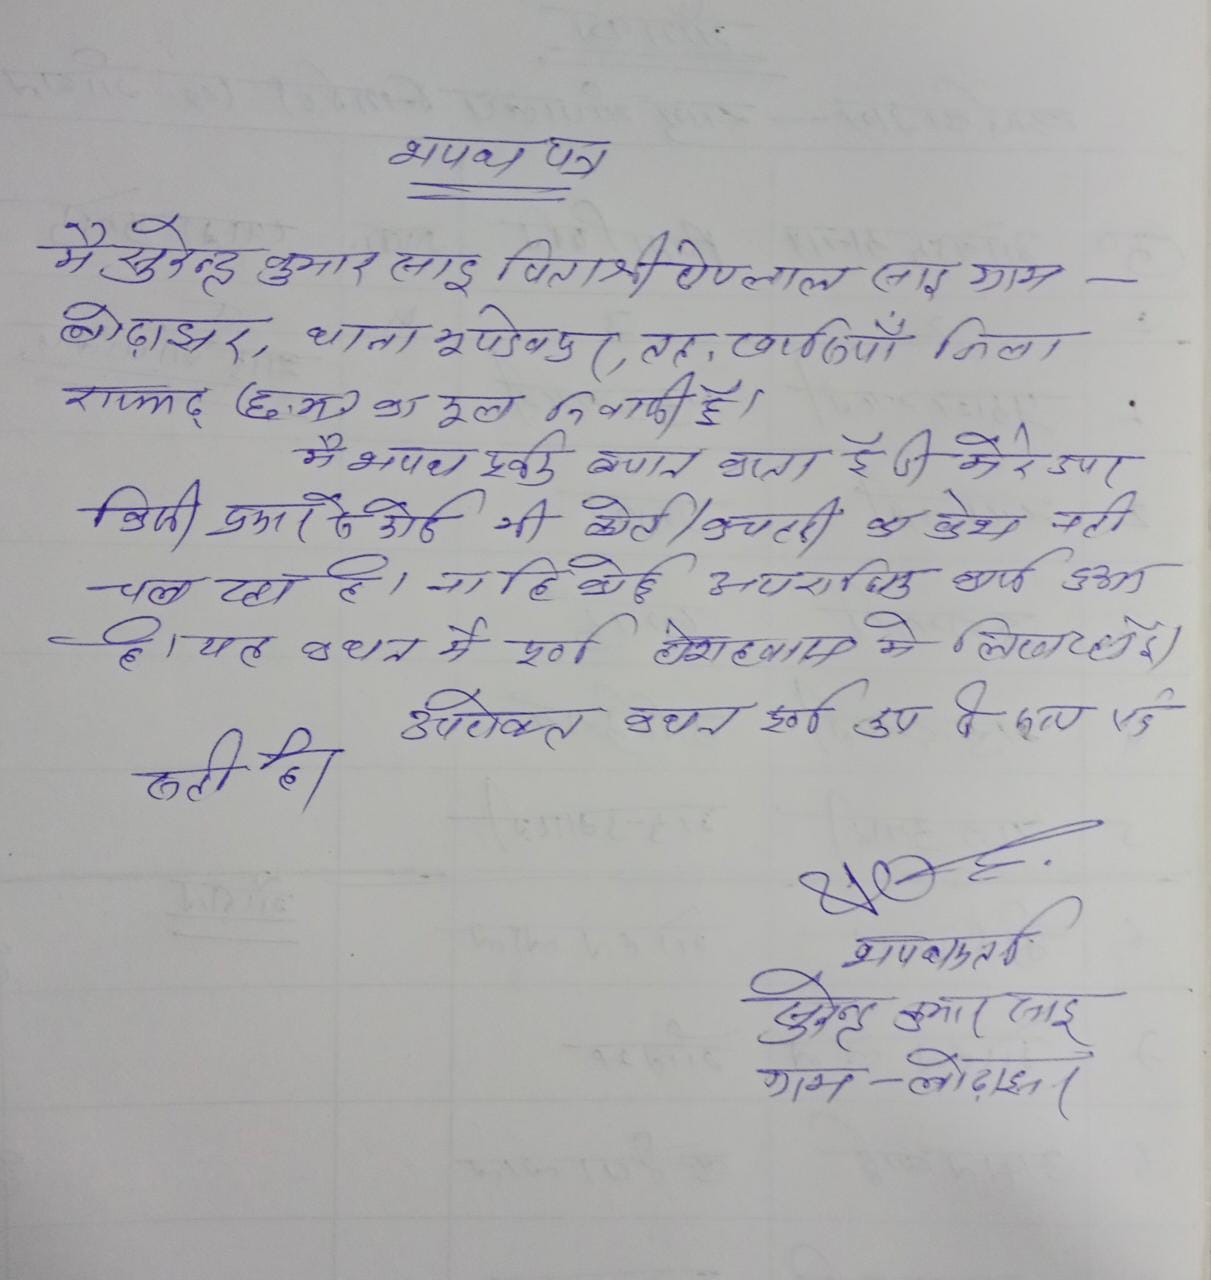 शपथ पत्र
मैं सुरेन्द्र कुमार साहू पिता श्री लाल साहू ग्राम –
लोढ़ाझर, थाना भूपदेवपुर, तह. खरसियाँ जिला
रायगढ़ (छ.ग.) का मूल निवासी हूँ।
मैं शपथ पूर्वक बयान करता हूँ की मेरे उपर
किसी प्रकार के कोई भी कोर्ट/कचहरी का केश नही
चल रहा है। ना हि कोई अपराधिक कार्य हुआ
है। यह कथन मैं पूर्ण होशहवास मे लिख रहा हूँ।
उपरोक्त कथन पूर्ण रूप से सत्य एवं
सही है।
शपथकर्ता
सुरेन्द्र कुमार साहू
ग्राम – लोढ़ाझर